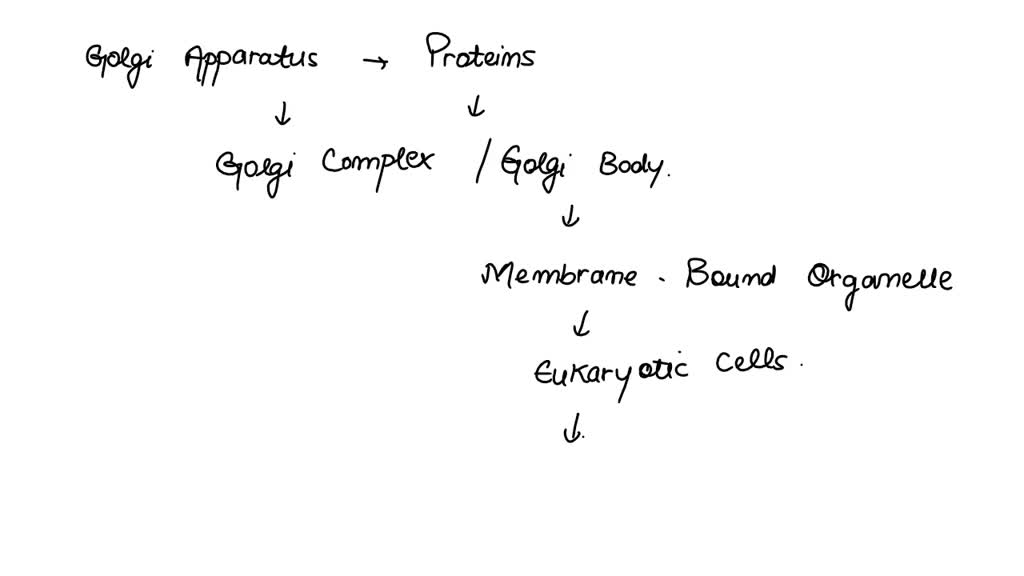 Golgi Apparatus → Proteins
↓ ↓
Golgi Complex / Golgi Body.
↓
Membrane. Bound Organelle
↓
Eukaryotic Cells.
↓.